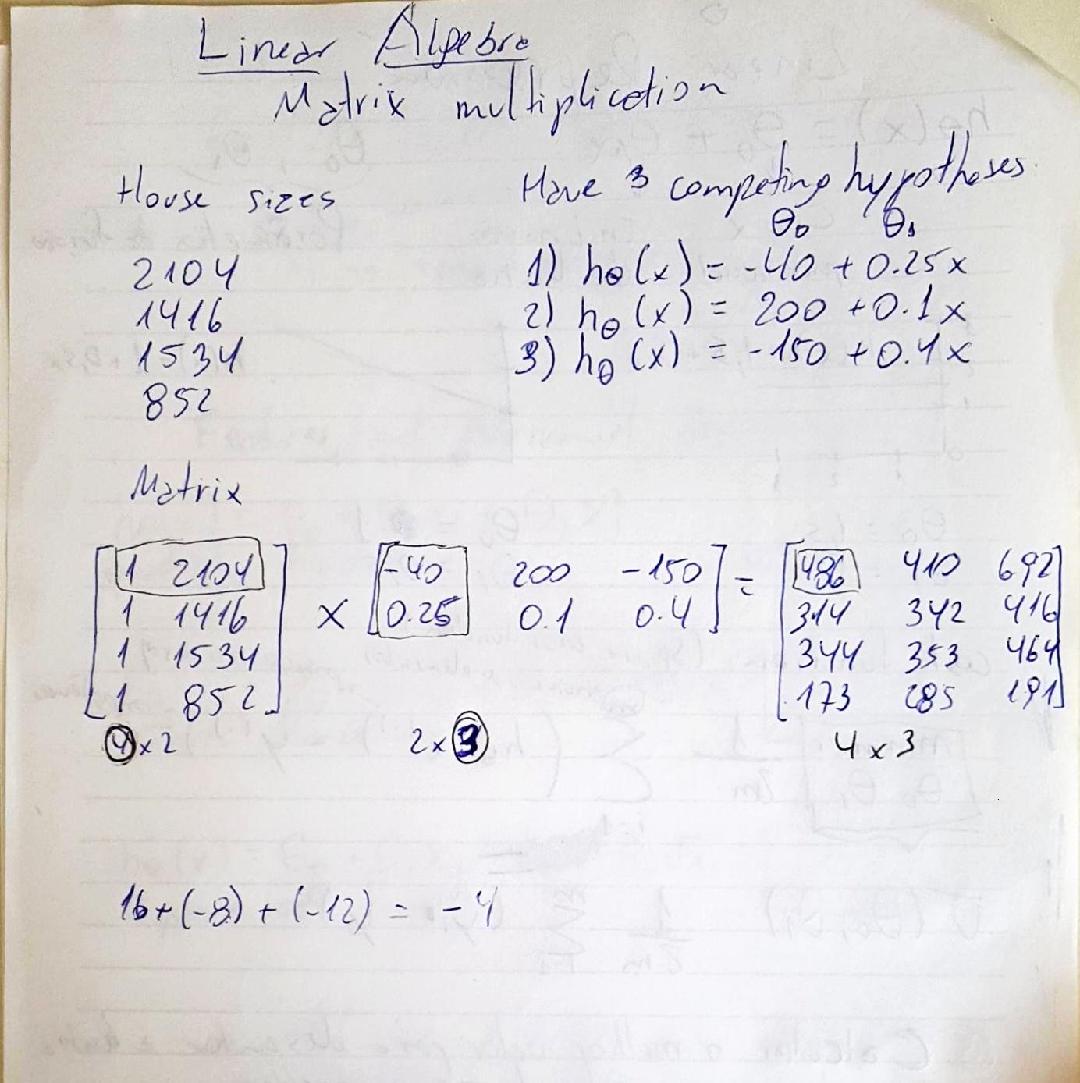 Linear Algebra
Matrix multiplication
House sizes
2104
1416
1534
852
Have 3 competing hypotheses
θ₀ θ₁
1) hθ(x) = -40 + 0.25x
2) hθ(x) = 200 + 0.1x
3) hθ(x) = -150 + 0.4x
Matrix
[1 2104] × [-40 200 -150] = [486 410 692]
[1 1416] [0.25 0.1 0.4] [314 342 416]
[1 1534] [344 353 464]
[1 852] [173 285 191]
4 x 2 2 x 3 4 x 3
16+(-8) + (-12) = -4